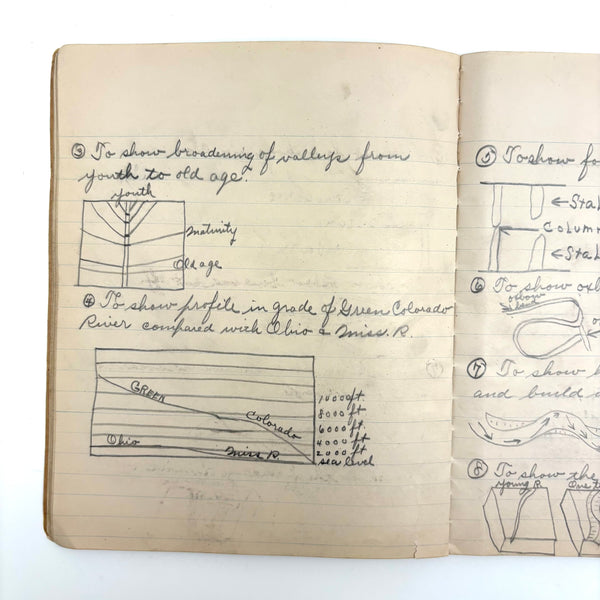 ③ To show broadening of valleys from
youth to old age.
youth
maturity
Old age
④ To show profile in grade of Green Colorado
River compared with Ohio & Miss. R.
GREEN
Colorado
Ohio
Miss. R
10000 ft.
8000 ft.
6000 ft.
4000 ft
2000 ft.
sea level
⑤ To show fo
Stal
Column
Stal
⑥ To show oxb
oxbow
lake
⑦ To show
and build
⑧ To show the
young R.